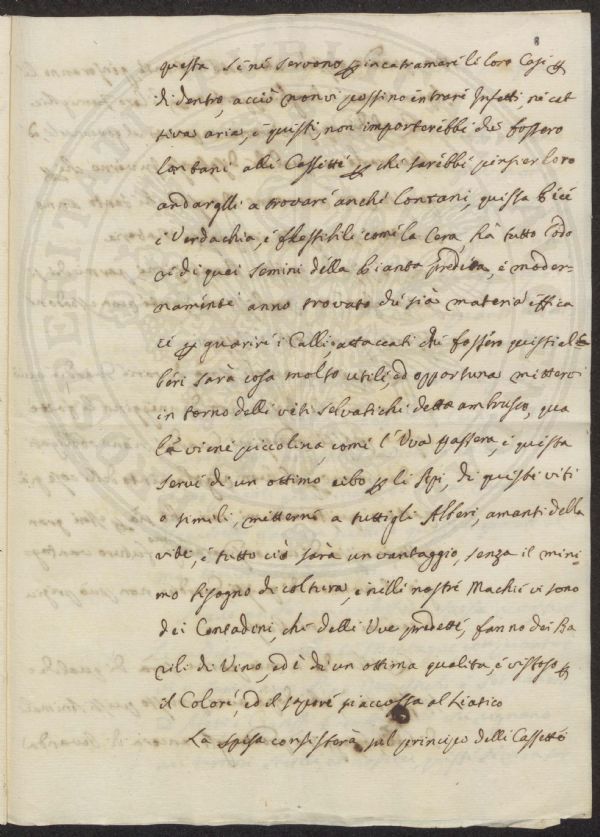 8
questa se ne servono p incatramare le loro Case p
di dentro, acciò non vi possino intrare Insetti, ne cat
tiva aria, e questi, non importerebbe che fossero
lontani alle Cassette p che sarebbe pensier loro
andargli a trovare anche lontani, questa Pece
è Verdachia, e flessibile come la Cera hà tutto l'odo
re di quei semini della Pianta predetta, e moder-
namente anno trovato che sià materia effica
ce p guarire i Calli, attaccati che fossero questi al
beri sarà cosa molto utile, ed opportuna mettervi
intorno delle viti selvatiche dette ambrusco, qua
le viene piccolina, come l'Uva passera, e questa
serve di un ottimo cibo p le Api, di queste viti
o simili, metterne a tutti gli Alberi, amanti della
vite, e tutto ciò sarà un vantaggio, senza il mini-
mo bisogno di coltura, e nelle nostre Machie vi sono
dei Contadini, che delle Uve predette, fanno dei Ba
rili di Vino, ed è di un ottima qualita, e vistoso p
il Colore, ed il sapore si accossa al Leatico
La spesa consisterà sul principio delle Cassette